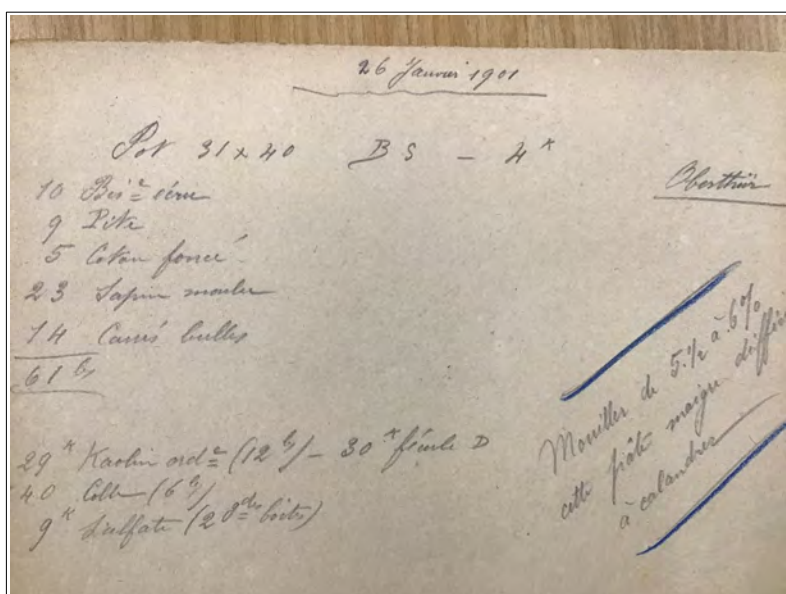 26 Janvier 1901
Pot 31 x 40 BS - 4 K
Oberthür
10 Bis
9 Pite
5 Coton foncé
23 Sapin moulu
14 Cassés bulles
61 bs
29 K Kaolin ord re (12 bs) - 30 K fécule D
40 Colle (6 bs)
9 K Sulfate (2 gdes boîtes)
Mouiller de 5 1/2 à 6%
cette pâte maigre
à calandrer